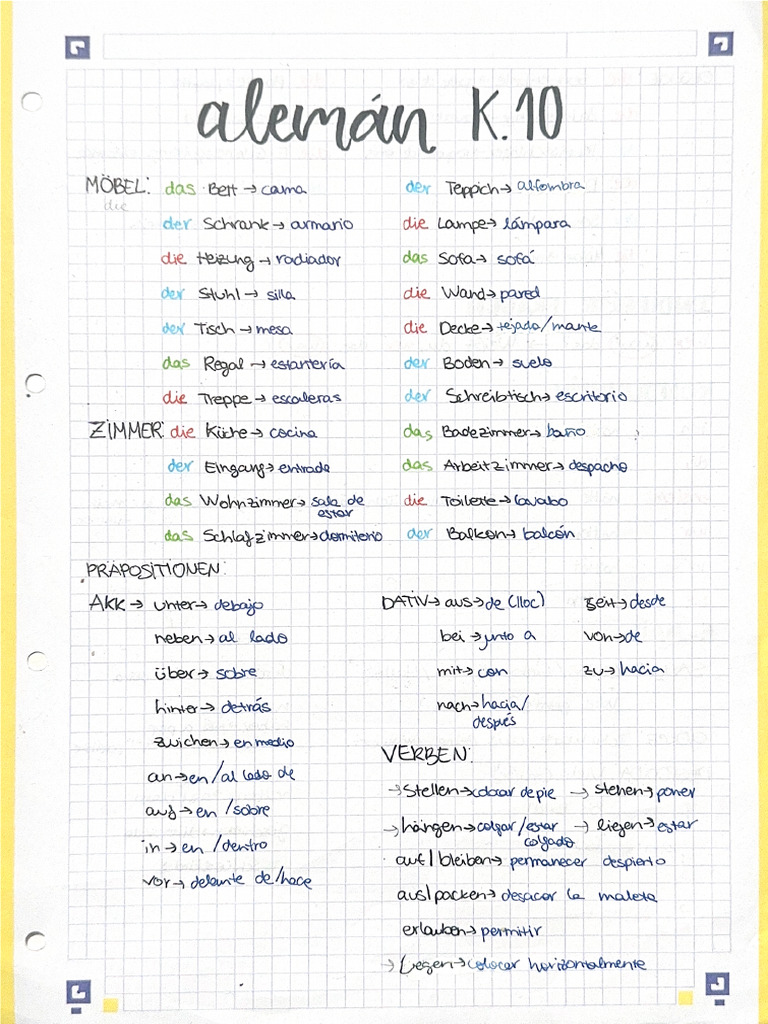 alemán K.10
MÖBEL: das Bett → cama
die
der Schrank → armario
die Heizung → radiador
der Stuhl → silla
der Tisch → mesa
das Regal → estantería
die Treppe → escaleras
der Teppich → alfombra
die Lampe → lámpara
das Sofa → sofá
die Wand → pared
die Decke → tejado/mante
der Boden → suelo
der Schreibtisch → escritorio
ZIMMER: die Küche → cocina
der Eingang → entrada
das Wohnzimmer → sala de
estar
das Schlafzimmer → dormitorio
das Badezimmer → baño
das Arbeitzimmer → despacho
die Toilette → lavabo
der Balkon → balcón
PRÄPOSITIONEN:
AKK → unter → debajo
neben → al lado
über → sobre
hinter → detrás
zwichen → en medio
an → en/al lado de
auf → en/sobre
in → en/dentro
vor → delante de/hace
DATIV → aus → de (lloc)
bei → junto a
mit → con
nach → hacia/
después
seit → desde
von → de
zu → hacia
VERBEN:
→ Stellen → colocar de pie → stehen → poner
→ hängen → colgar/estar
colgado
→ liegen → estar
auf/bleiben → permanecer despierto
aus/packen → desacar la maleta
erlauben → permitir
→ Legen → colocar horizontalmente